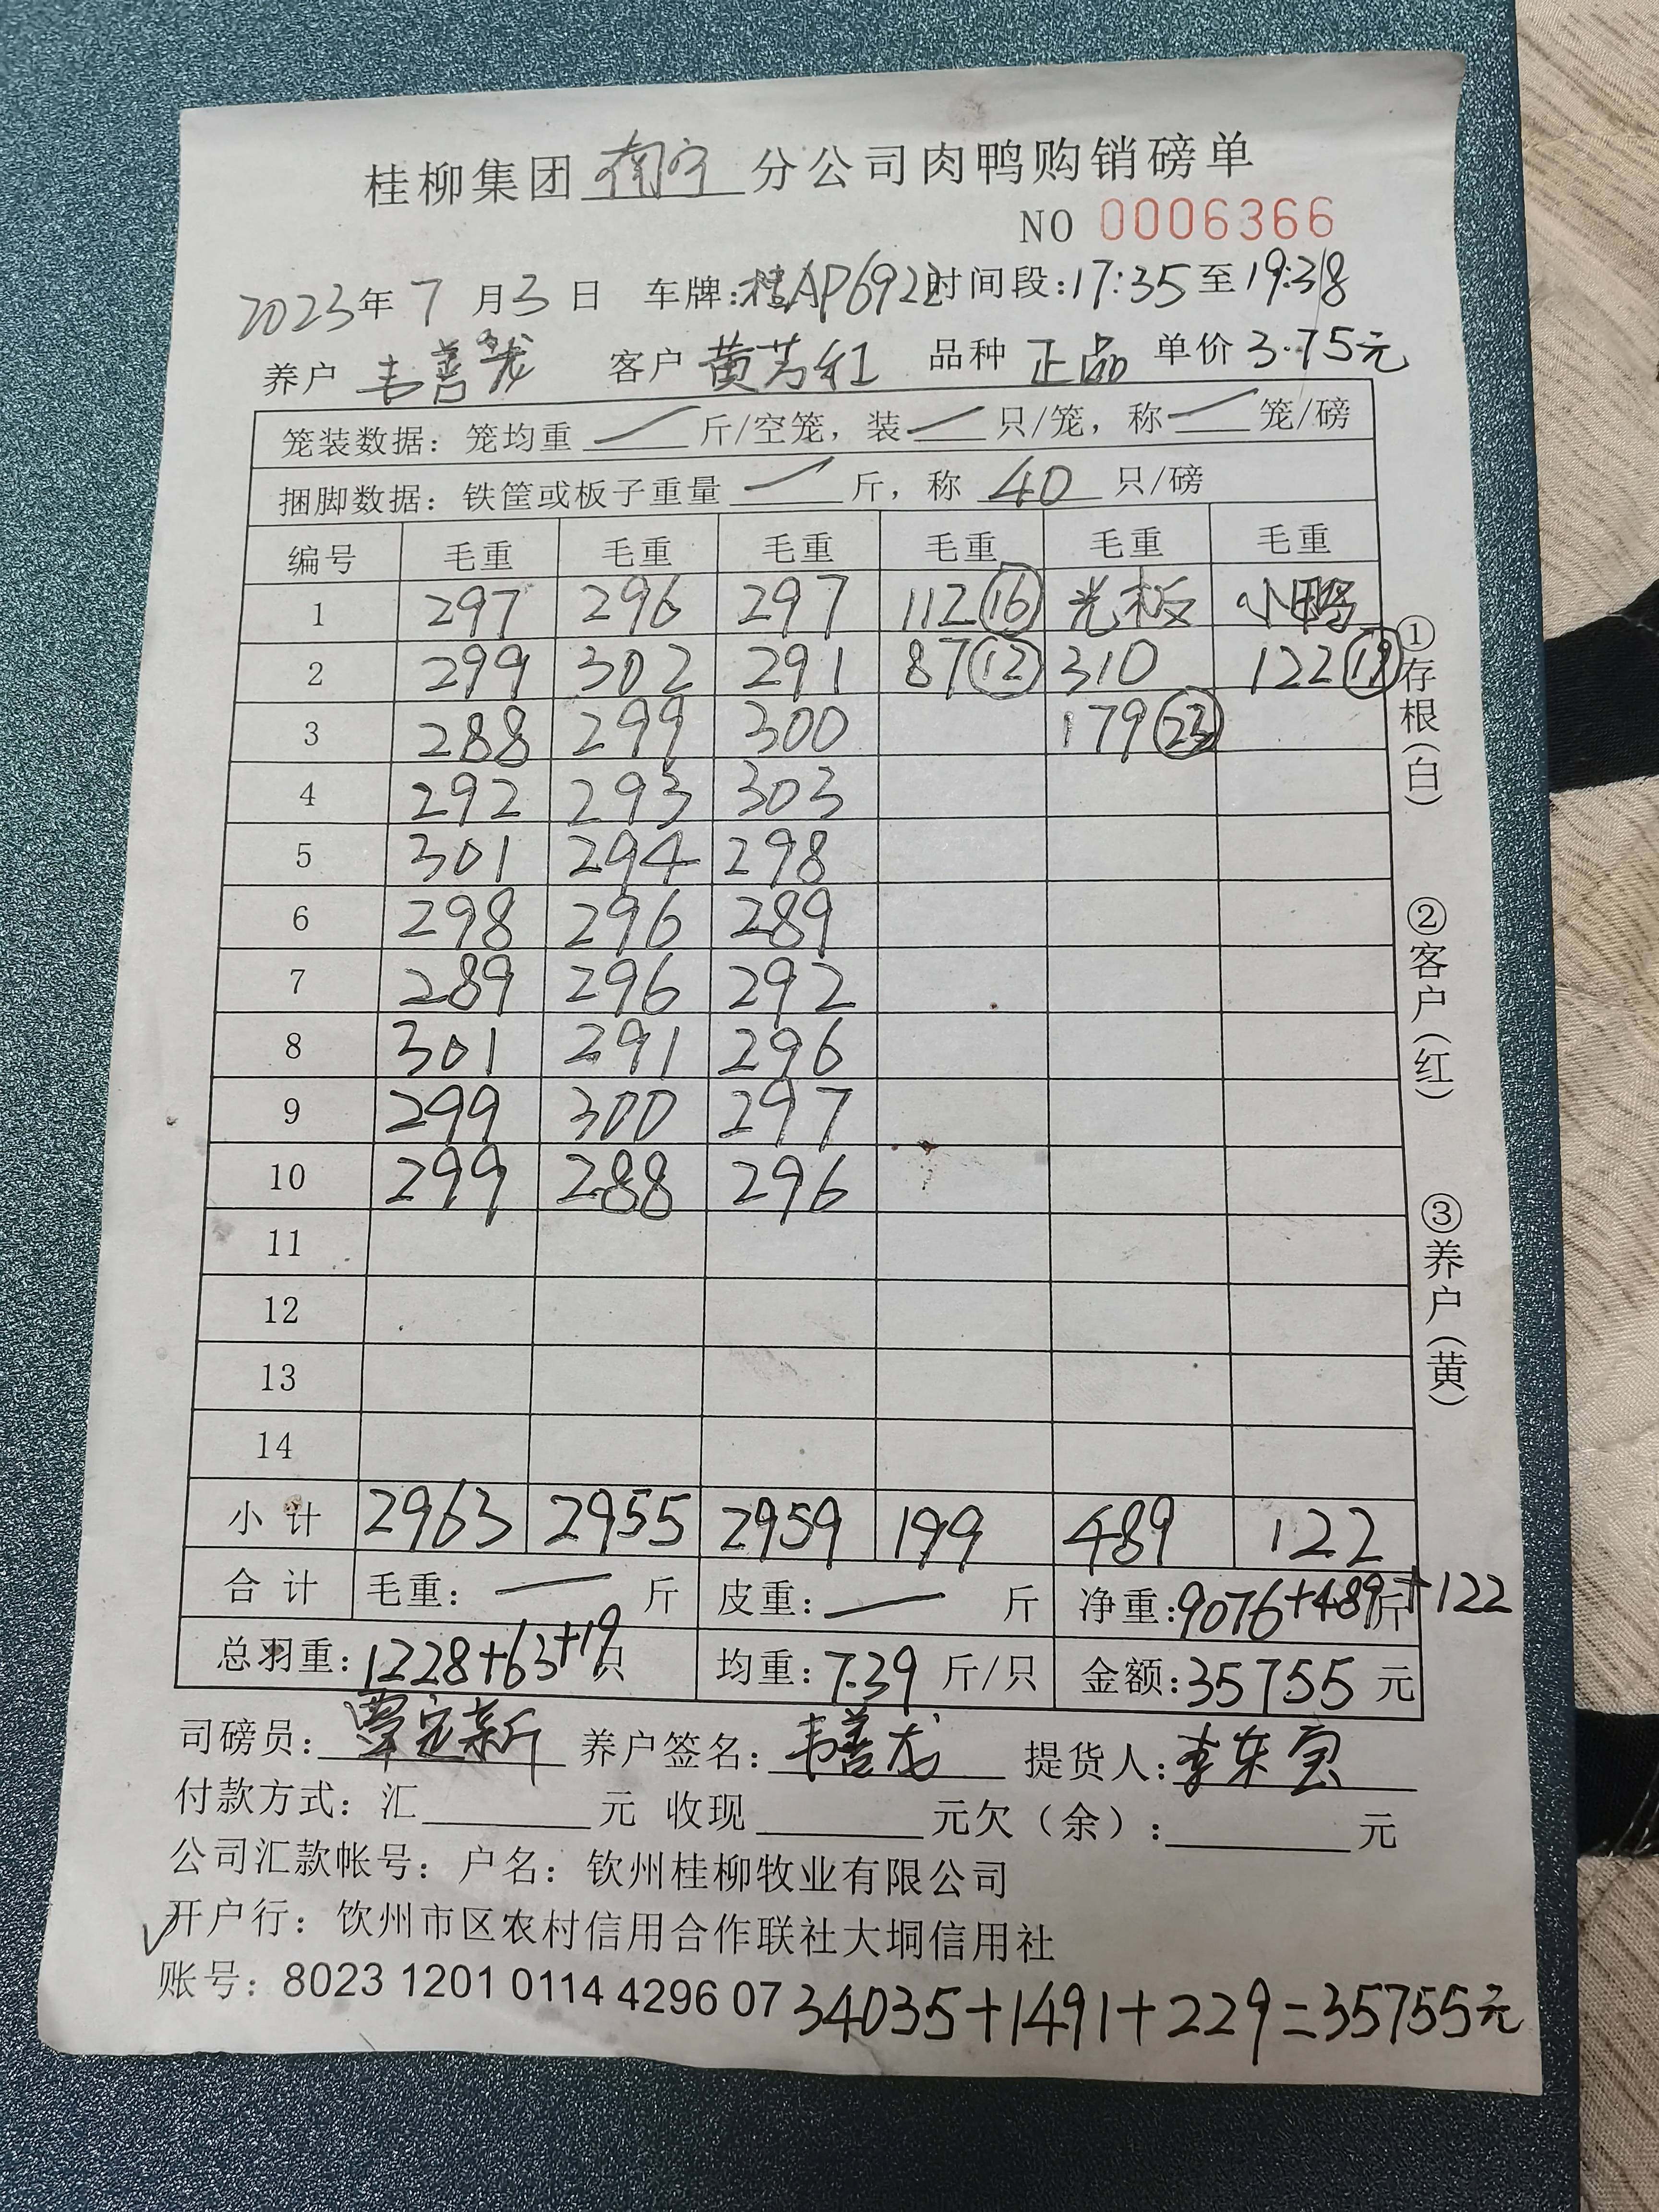 桂柳集团 南宁 分公司肉鸭购销磅单
NO 0006366
2023年 7 月 3 日 车牌:桂AP6922 时间段:17:35 至 19:38
养户 韦善龙 客户 黄芳红 品种 正品 单价 3.75元
笼装数据: 笼均重 / 斤/空笼, 装 / 只/笼, 称 / 笼/磅
捆脚数据: 铁筐或板子重量 / 斤, 称 40 只/磅
编号 毛重 毛重 毛重 毛重 毛重 毛重
1 297 296 297 112⑯ 光板 小鸭
2 299 302 291 87⑫ 310 122⑲
3 288 299 300 179㉓
4 292 293 303
5 301 294 298
6 298 296 289
7 289 296 292
8 301 291 296
9 299 300 297
10 299 288 296
11
12
13
14
小计 2963 2955 2959 199 489 122
合计 毛重: — 斤 皮重: — 斤 净重:9076+489斤+122
总羽重:1228+63+19只 均重:7.39 斤/只 金额:35755 元
司磅员: 覃定新 养户签名: 韦善龙 提货人: 李东宝
付款方式: 汇 元 收现 元欠(余): 元
公司汇款帐号: 户名: 钦州桂柳牧业有限公司
√开户行: 钦州市区农村信用合作联社大垌信用社
账号: 8023 1201 0114 4296 07 34035+1491+229=35755元
①存根(白)
②客户(红)
③养户(黄)